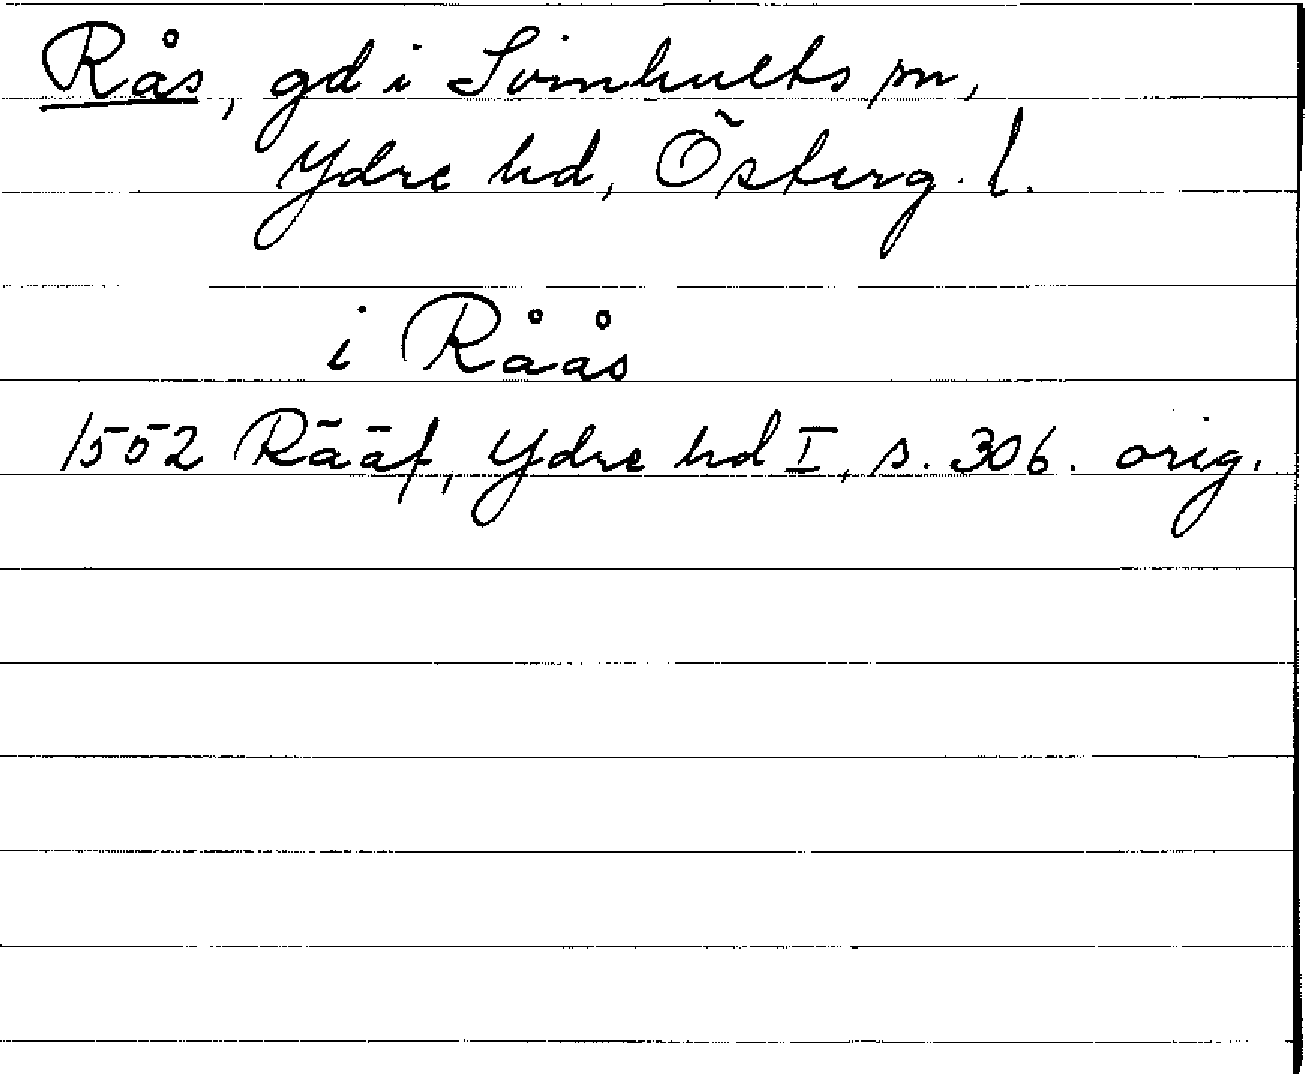 Rås, gd i Svinhults sn,
Ydre hd, Österg. l.
i Råås
1552 Rääf, Ydre hd I, s. 306. orig.